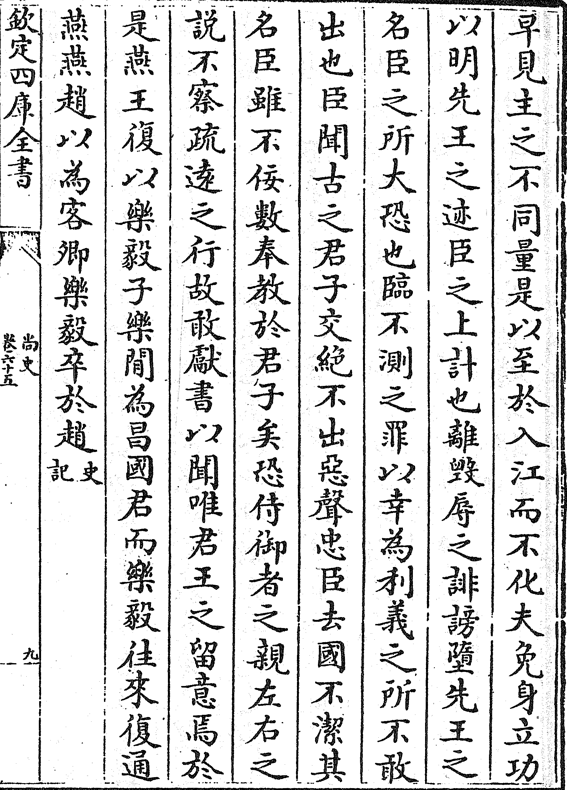 早見主之不同量是以至於入江而不化夫免身立功
以明先王之迹臣之上計也離毀辱之誹謗墮先王之
名臣之所大恐也臨不測之罪以幸為利義之所不敢
出也臣聞古之君子交絶不出惡聲忠臣去國不潔其
名臣雖不佞數奉教於君子矣恐侍御者之親左右之
説不察疏逺之行故敢獻書以聞唯君王之留意焉於
是燕王復以樂毅子樂閒為昌國君而樂毅往來復通
燕燕趙以為客卿樂毅卒於趙史記
欽定四庫全書
尚史
卷六十五
九